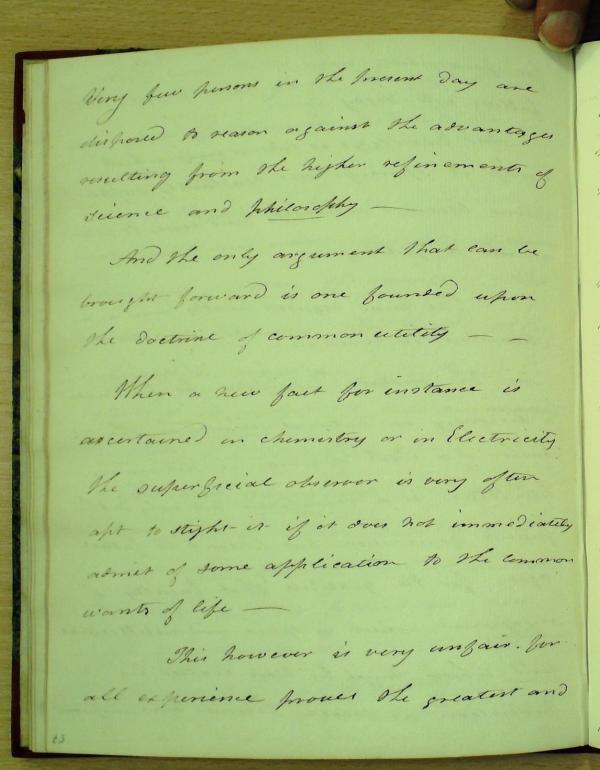 Very few persons in the present day are
disposed to reason against the advantages
resulting from the higher refinements of
science and philosophy —
And the only argument that can be
brought forward is one founded upon
the doctrine of common utility — —
When a new fact for instance is
ascertained in chemistry or in Electricity
the superficial observer is very often
apt to slight it if it does not immediately
admit of some application to the common
wants of life —
This however is very unfair. for
all experience proves the greatest and